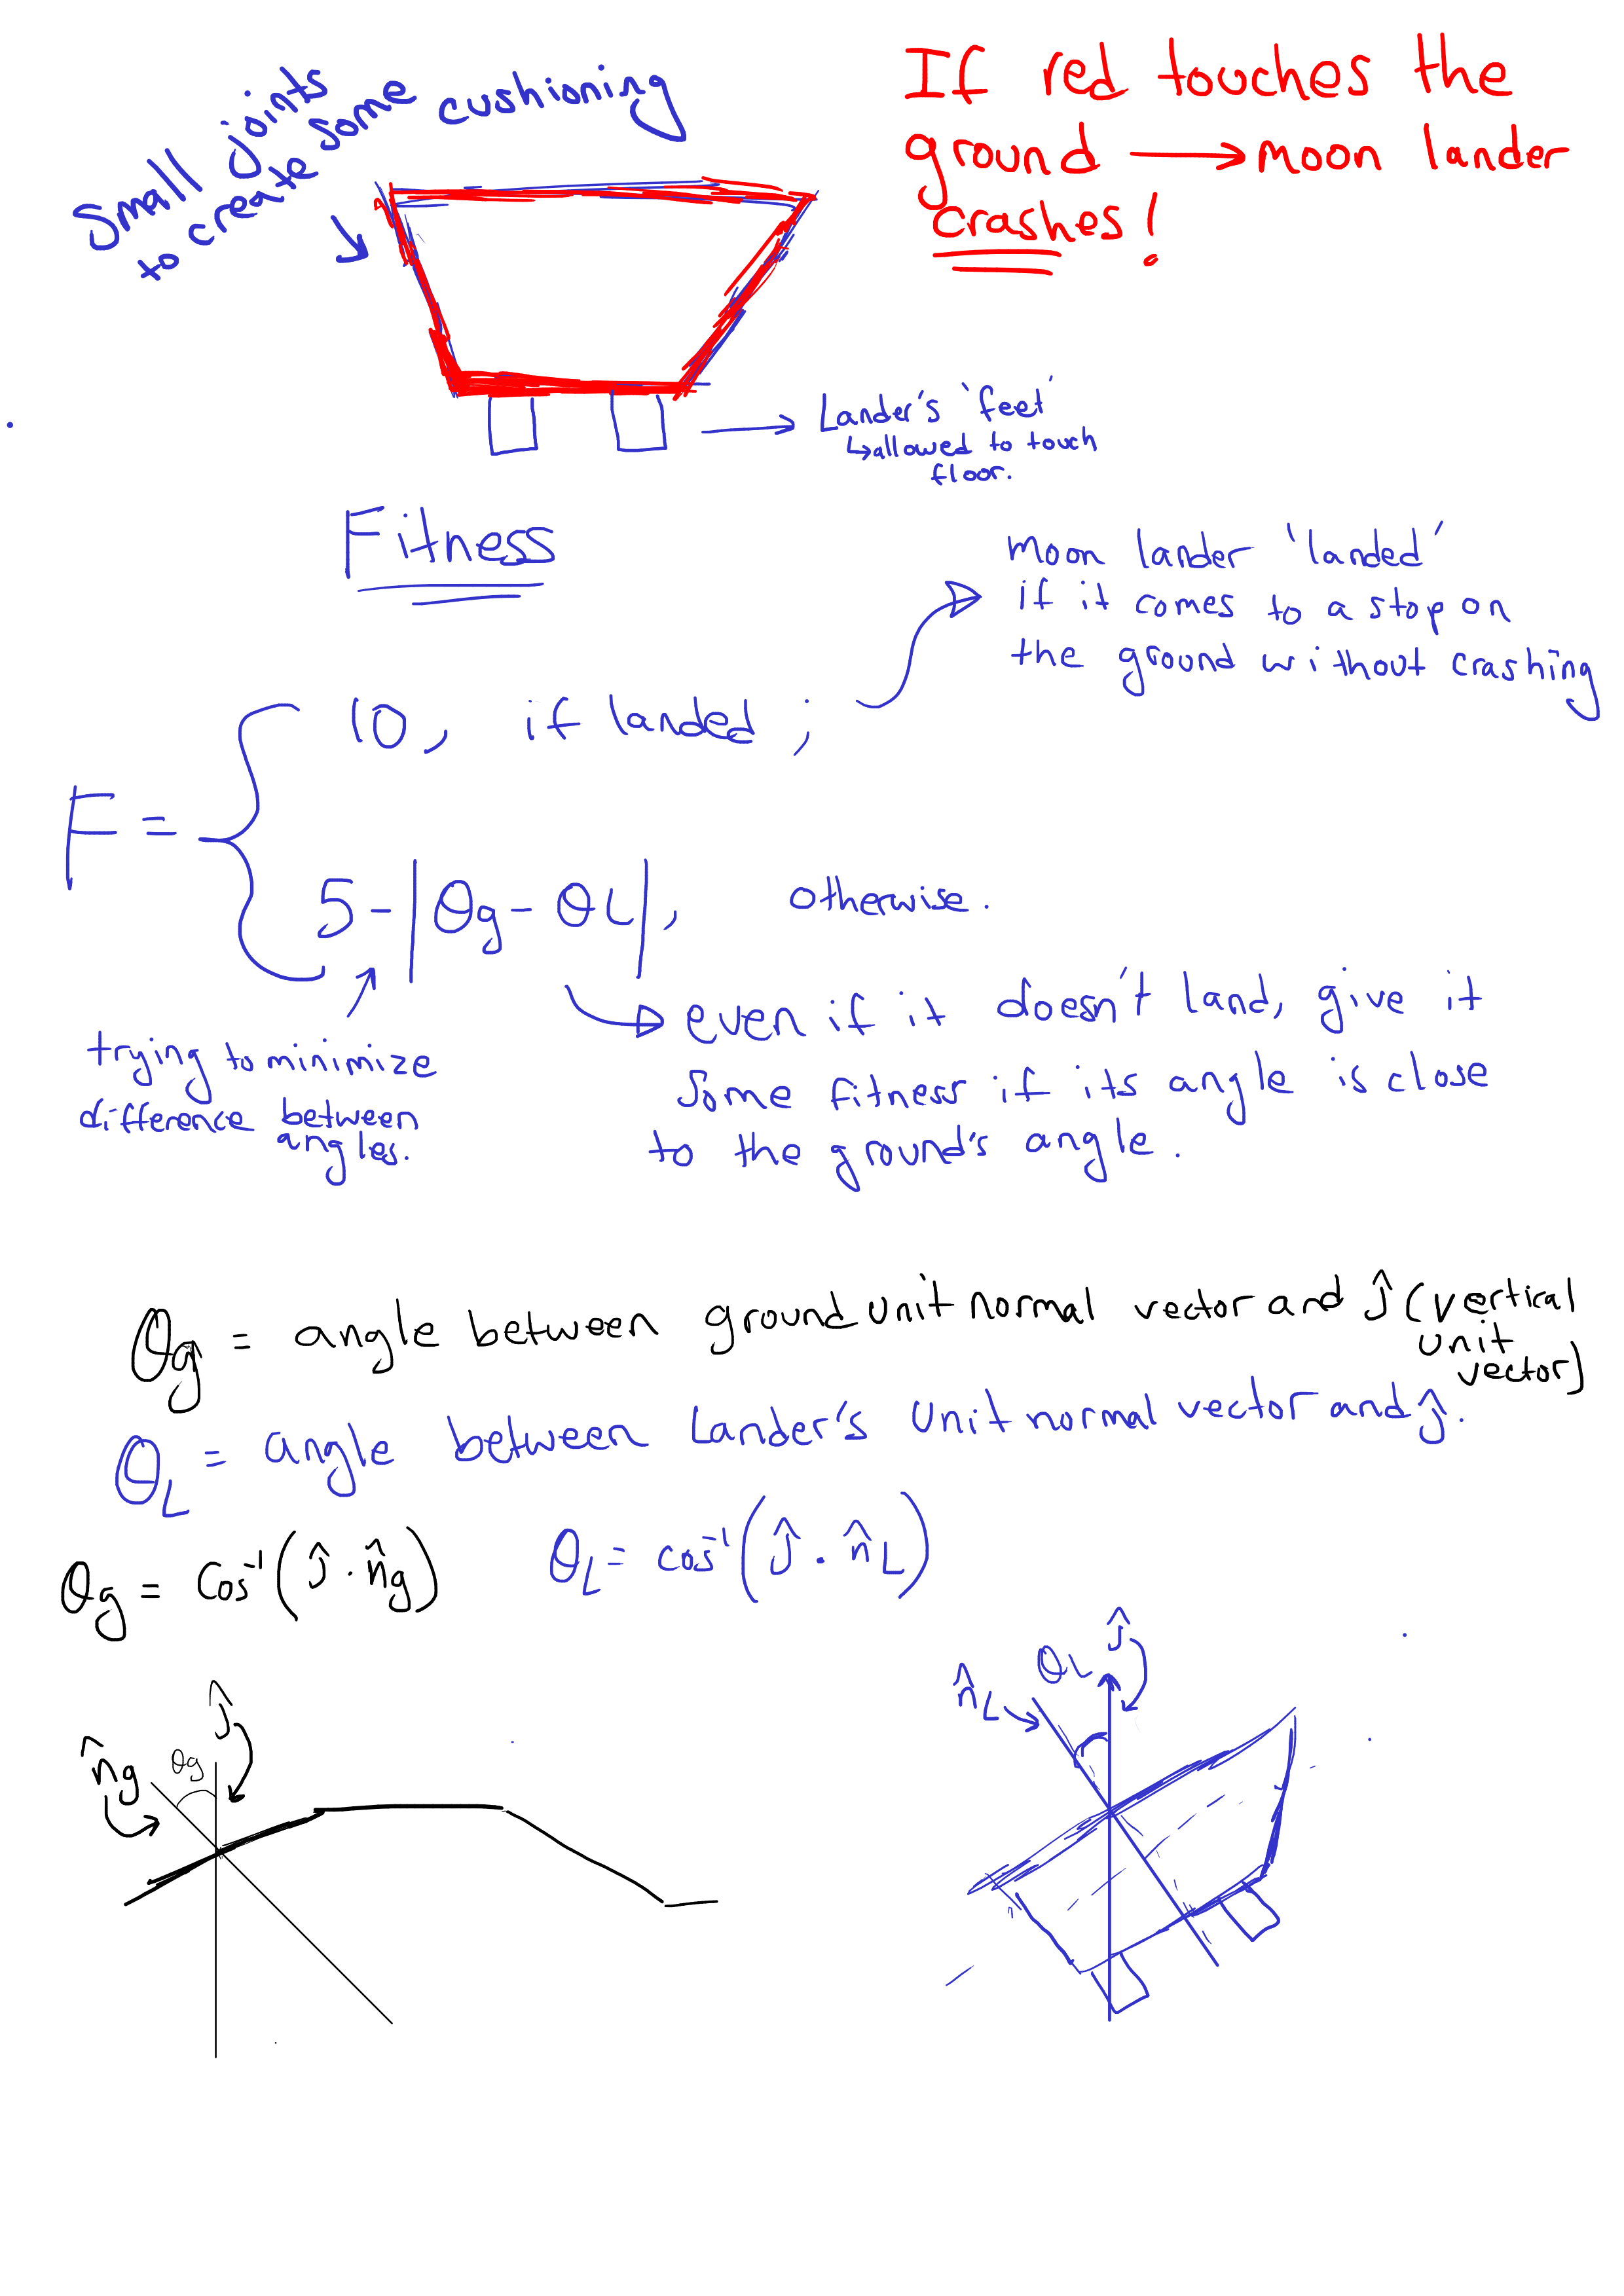 Small joints
to create some cushioning
If red touches the
ground → moon lander
crashes!
Lander's 'feet'
↳allowed to touch
floor.
Fitness
moon lander 'landed'
if it comes to a stop on
the ground without crashing
F = { 10, if landed ;
5 - |θg - θL|, otherwise.
trying to minimize
difference between
angles.
even if it doesn't land, give it
some fitness if its angle is close
to the ground's angle.
θg = angle between ground unit normal vector and ĵ (vertical
unit
vector)
θL = angle between Lander's unit normal vector and ĵ.
θg = cos⁻¹(ĵ · n̂g)
θL = cos⁻¹(ĵ · n̂L)
n̂g
θg
ĵ
n̂L
θL
ĵ